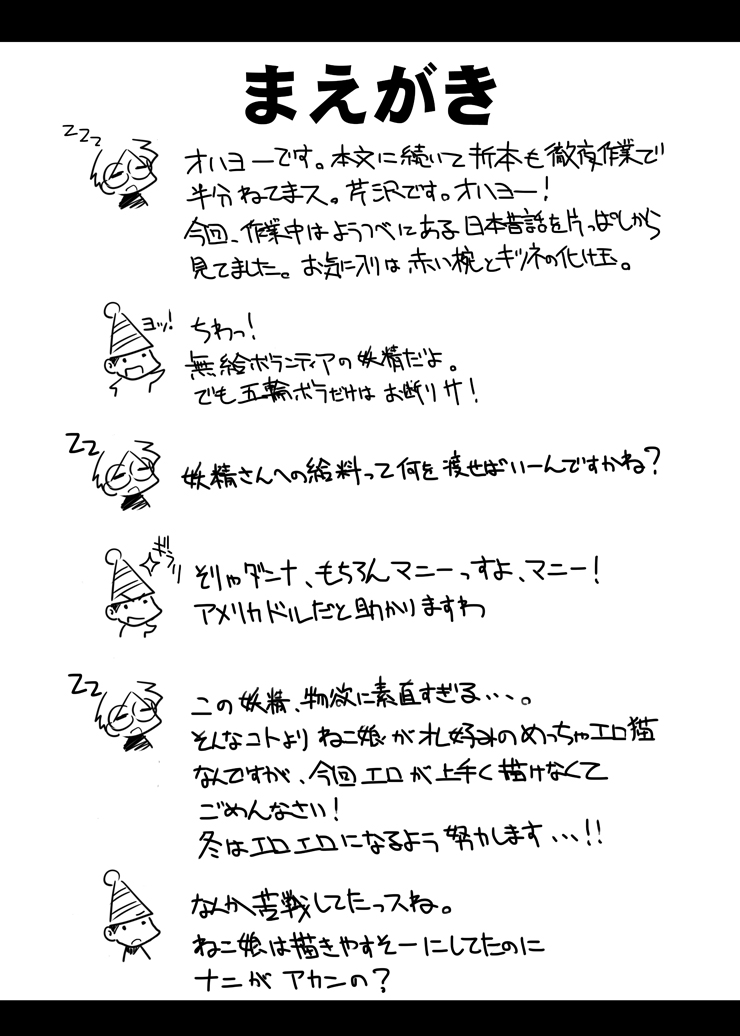 まえがき
zzz
オハヨーです。本文に続いて折本も徹夜作業で
半分ねてまス。芹沢です。オハヨー!
今回、作業中はようつべにある日本昔話を片っぱしから
見てました。お気に入りは赤い椀とキツネの化け玉。
ヨッ!
ちわっ!
無給ボランティアの妖精だよ。
でも五輪ボラだけはお断りサ!
zz
妖精さんへの給料って何を渡せばいーんですかね?
ギラリ
そりゃダンナ、もちろんマニーっすよ、マニー!
アメリカドルだと助かりますわ
zz
この妖精、物欲に素直すぎる・・・。
そんなコトよりねこ娘が札好みのめっちゃエロ猫
なんですが、今回エロが上手く描けなくて
ごめんなさい!
冬はエロエロになるよう努力します・・・!!
なんか苦戦してたっスね。
ねこ娘は描きやすそーにしてたのに
ナニがアカンの?